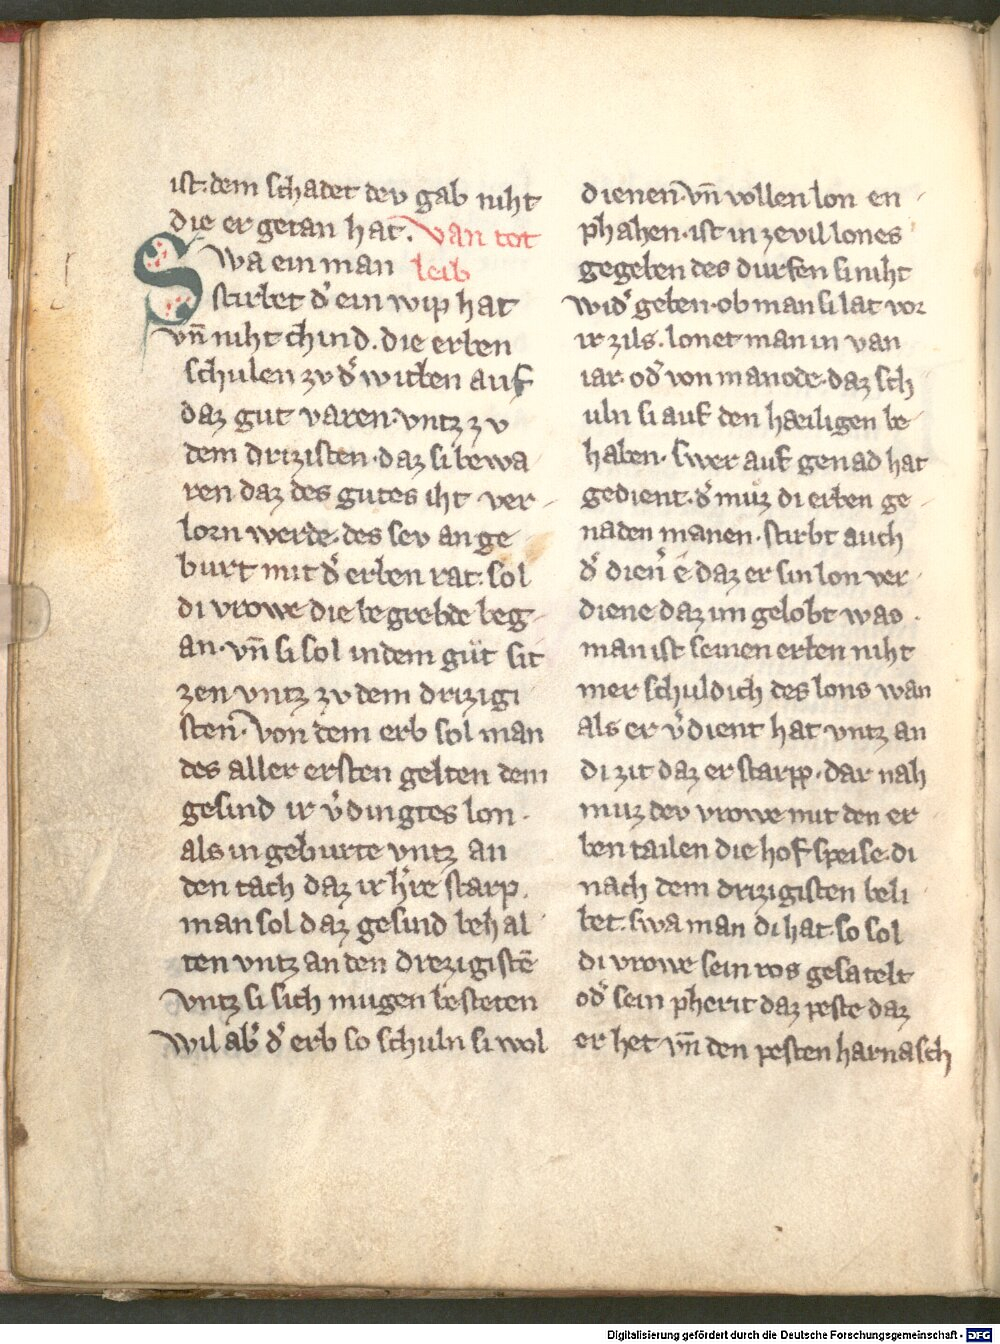 ist. dem schadet dev gab niht
die er getan hat. van tot
Swa ein man leib
stirbet d̾ ein wip hat
vn̄ niht chind. die erben
schulen zv d̾ witben auf
daz gut varen. vntz zv
dem drizisten. daz si bewa
ren daz des gutes iht ver-
lorn werde. des sev an ge-
burt mit d̾ erben rat. sol
di vrowe die begrebde beg-
an. vn̄ si sol in dem güt sit
zen vntz zv dem drizigi
sten. von dem erb sol man
des aller ersten gelten dem
gesind ir v̾dingtes lon.
als in geburte vntz an
den tach daz ir h̾re starp.
man sol daz gesind behal-
ten vntz an den drezigistē
vntz si sich mugen besteten
wil ab̾ d̾ erb so schuln si wol
dienen. vn̄ vollen lon en-
phahen. ist in ze vil lones
gegeben des durfen si niht
wid̾ geben. ob man si lat vor
ir zils. lonet man in van
iar. od̾ von manode. daz sch
uln si auf den haeiligen be-
haben. swer auf genad hat
gedient. d̾ muz di erben ge-
naden manen. stirbt auch
d̾ dien̾ e daz er sin lon ver-
diene daz im gelobt was.
man ist seinen erben niht
mer schuldich des lons wan
als er v̾dient hat vntz an
di zit daz er starpp. dar nah
muz dev vrowe mit den er-
ben tailen die hof speise. di
nach dem drizigisten beli-
bet. swa man di hat. so sol
di vrowe sein ros gesatelt
od̾ sein pherit daz peste daz
er het vn̄ den pesten harnasch
Digitalisierung gefördert durch die Deutsche Forschungsgemeinschaft - DFG